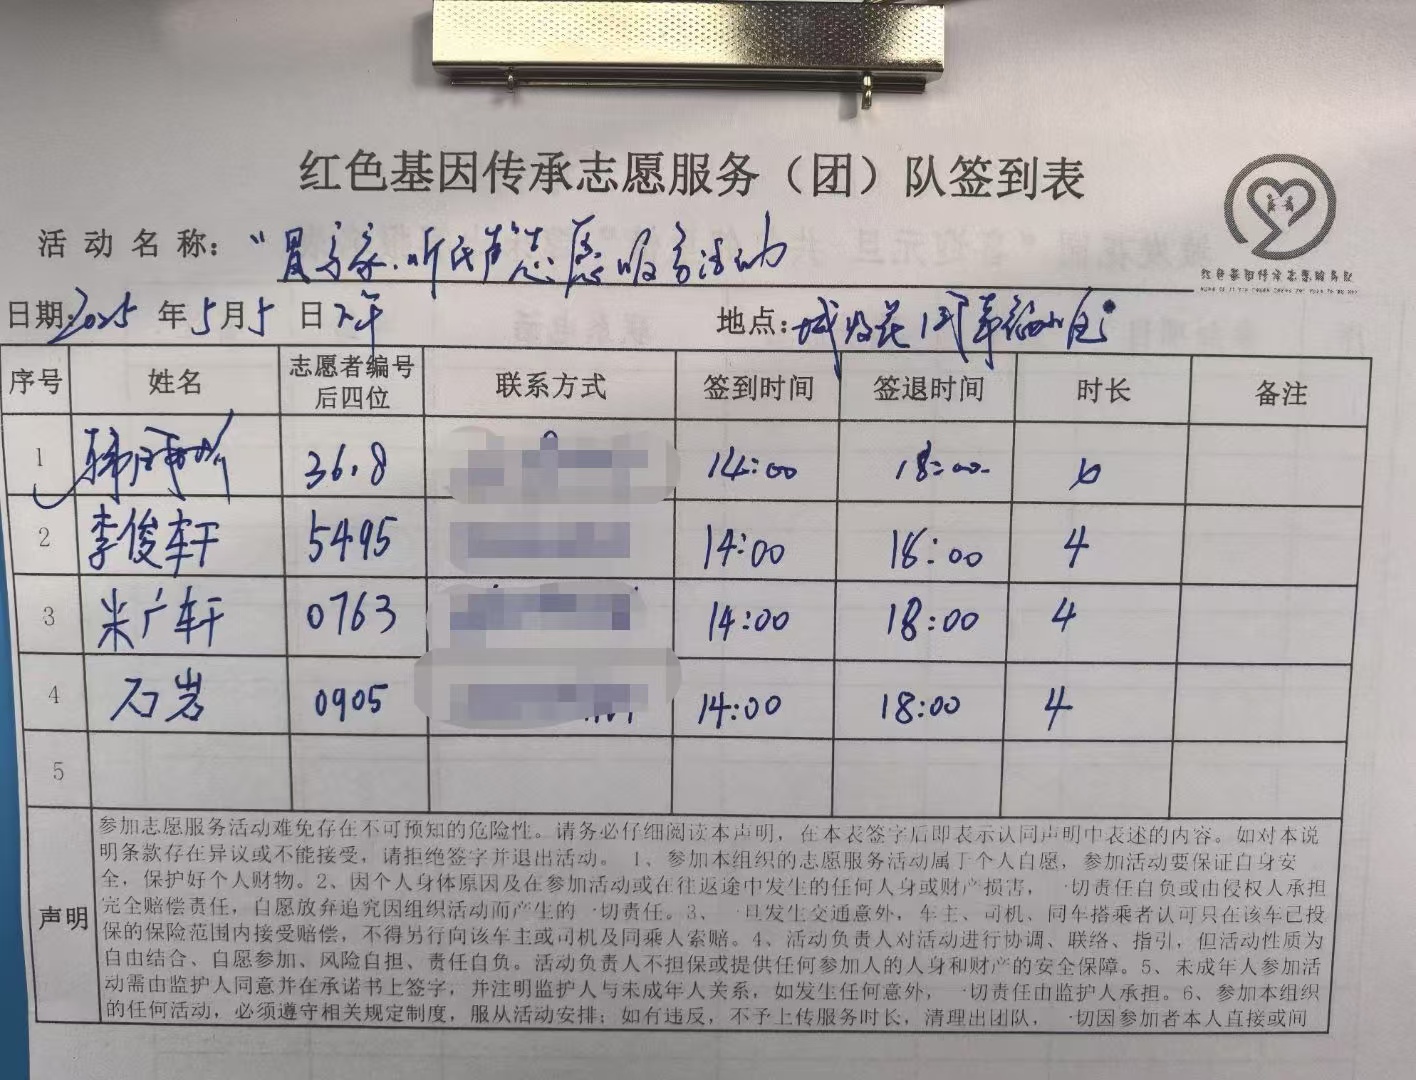 红色基因传承志愿服务（团）队签到表
活动名称：“ 听民声”志愿服务活动
红色基因传承志愿服务队
日期：2025年5月5日下午 地点：
序号 姓名 志愿者编号后四位 联系方式 签到时间 签退时间 时长 备注
1 14:00 18:00
2 李俊轩 5495 14:00 18:00 4
3 米广轩 0763 14:00 18:00 4
4 石岩 0905 14:00 18:00 4
5
声明
参加志愿服务活动难免存在不可预知的危险性。请务必仔细阅读本声明，在本表签字后即表示认同声明中表述的内容。如对本说
明条款存在异议或不能接受，请拒绝签字并退出活动。 1、参加本组织的志愿服务活动属于个人自愿，参加活动要保证自身安
全，保护好个人财物。2、因个人身体原因及在参加活动或在往返途中发生的任何人身或财产损害，一切责任自负或由侵权人承担
完全赔偿责任，自愿放弃追究因组织活动而产生的一切责任。3、一旦发生交通意外，车主、司机、同车搭乘者认可只在该车已投
保的保险范围内接受赔偿，不得另行向该车主或司机及同乘人索赔。4、活动负责人对活动进行协调、联络、指引，但活动性质为
自由结合、自愿参加、风险自担、责任自负。活动负责人不担保或提供任何参加人的人身和财产的安全保障。5、未成年人参加活
动需由监护人同意并在承诺书上签字，并注明监护人与未成年人关系，如发生任何意外，一切责任由监护人承担。6、参加本组织
的任何活动，必须遵守相关规定制度，服从活动安排；如有违反，不予上传服务时长，清理出团队，一切因参加者本人直接或间